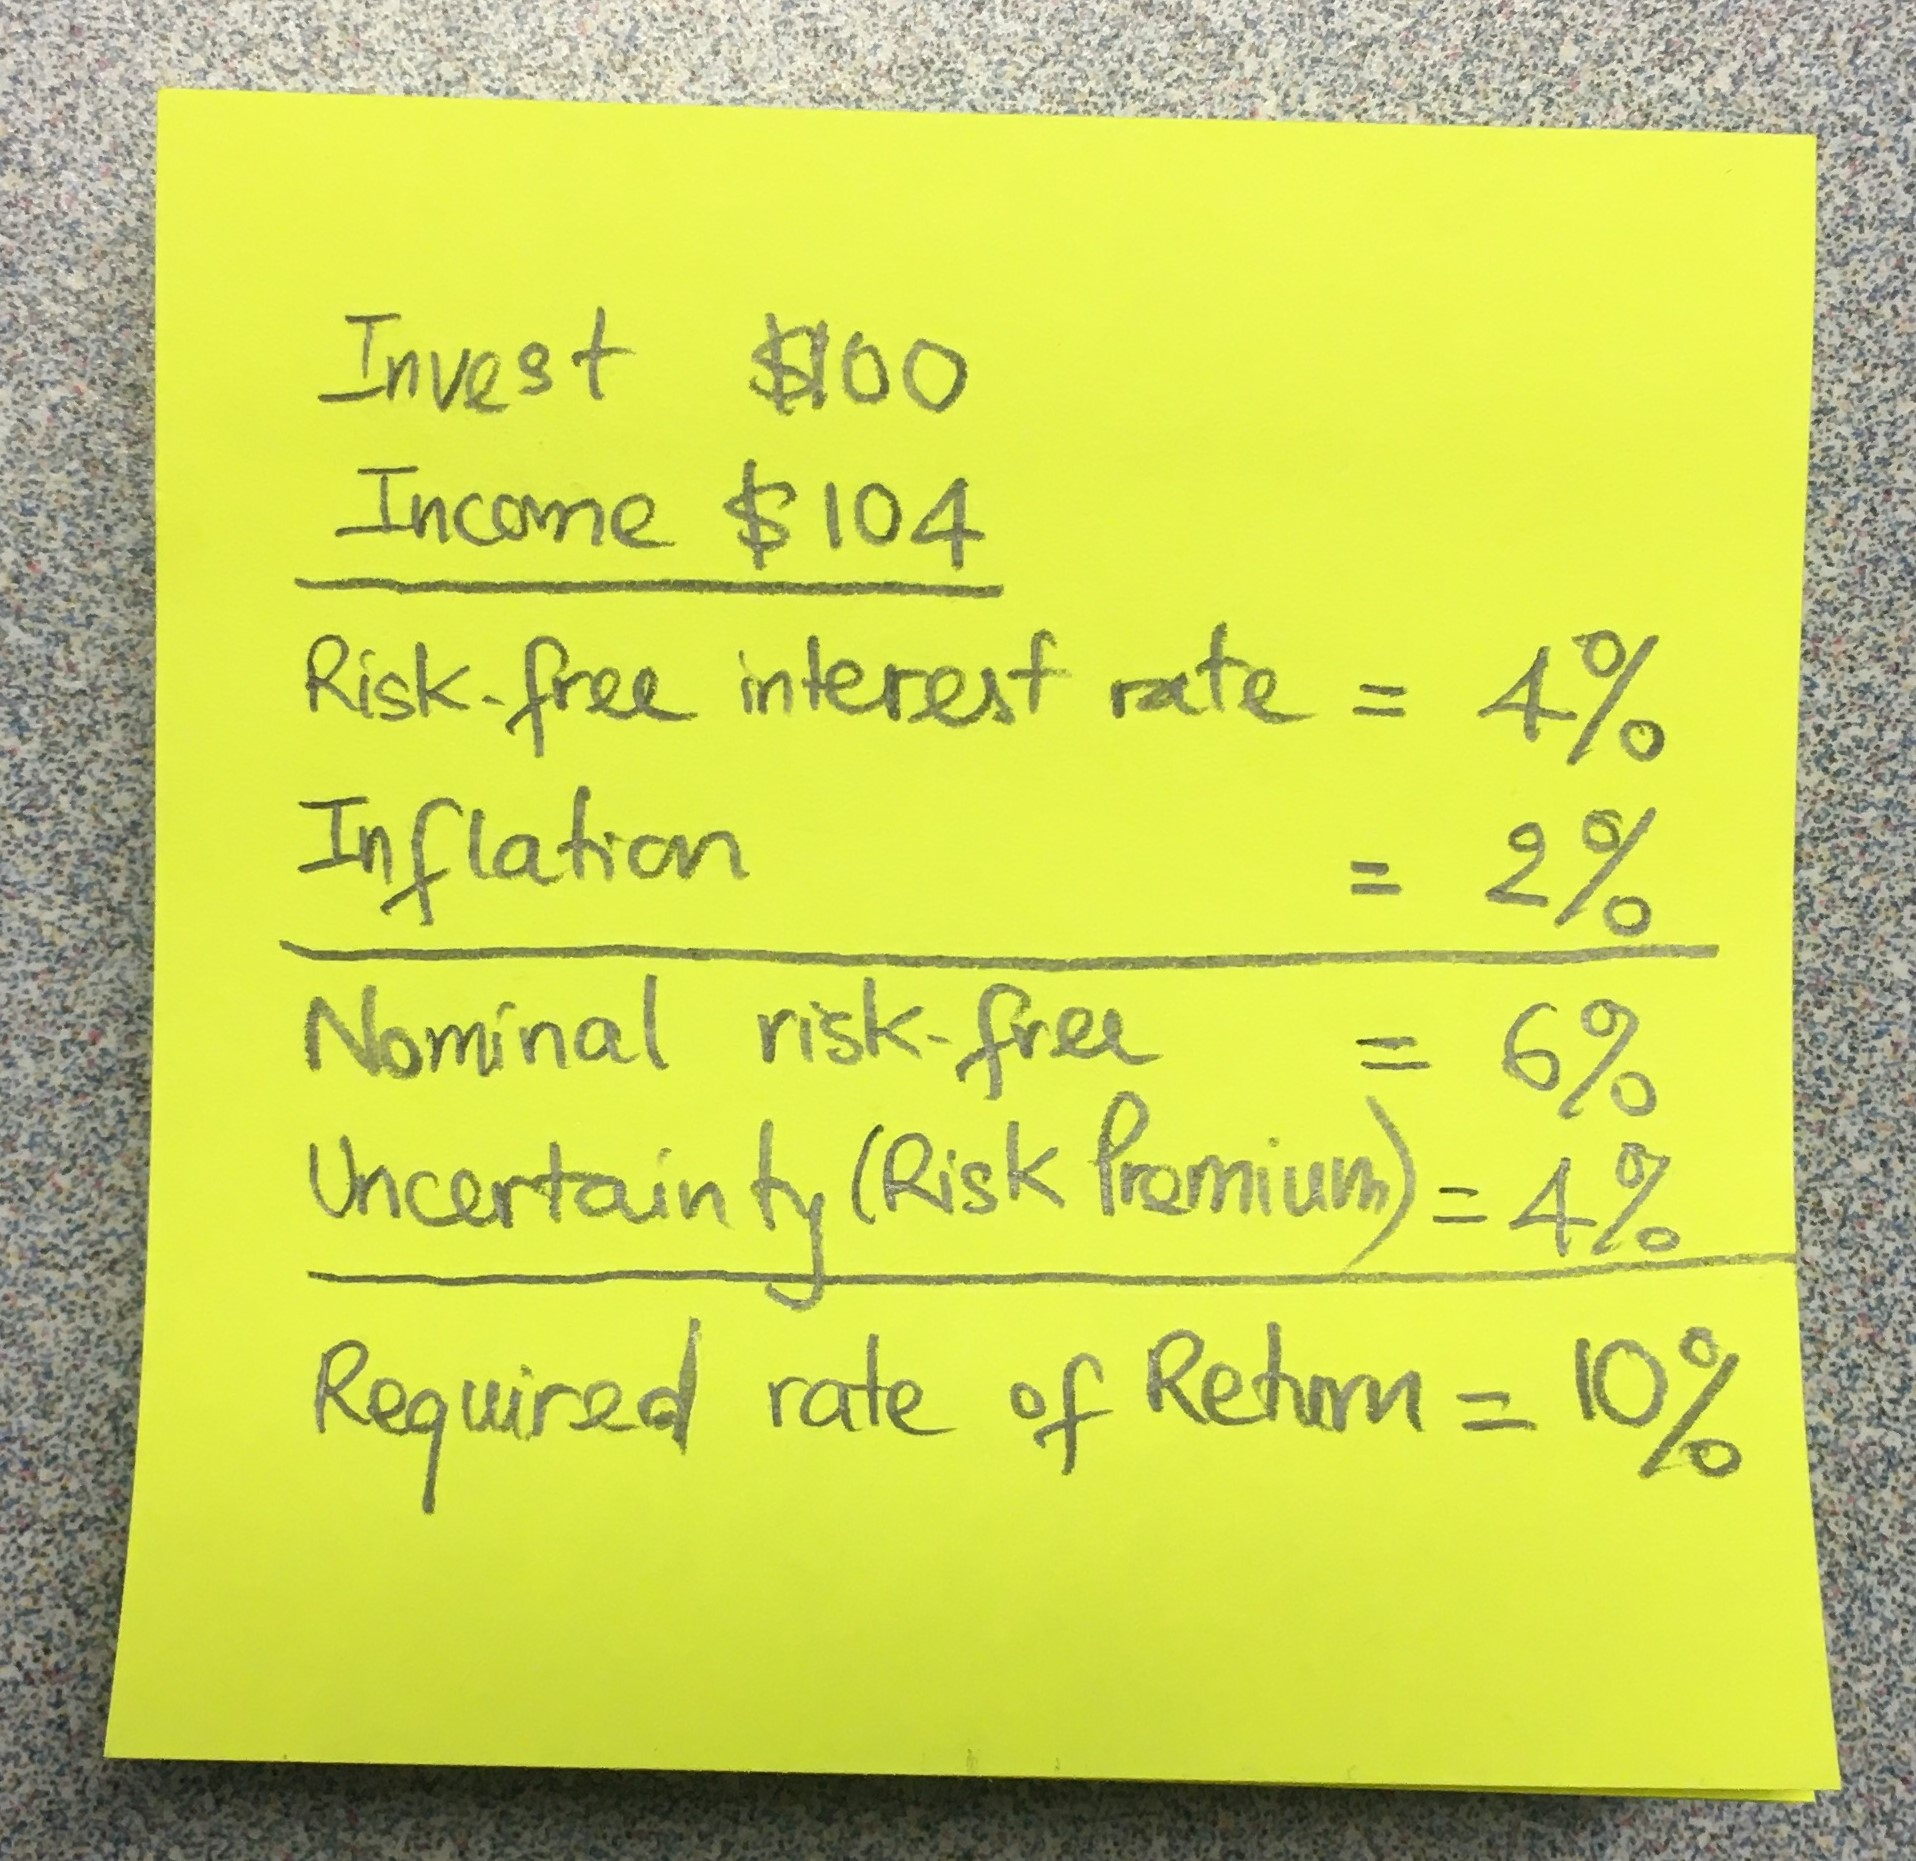 Invest $100
Income $104
Risk-free interest rate = 4%
Inflation = 2%
Nominal risk-free = 6%
Uncertainty (Risk Premium) = 4%
Required rate of Return = 10%